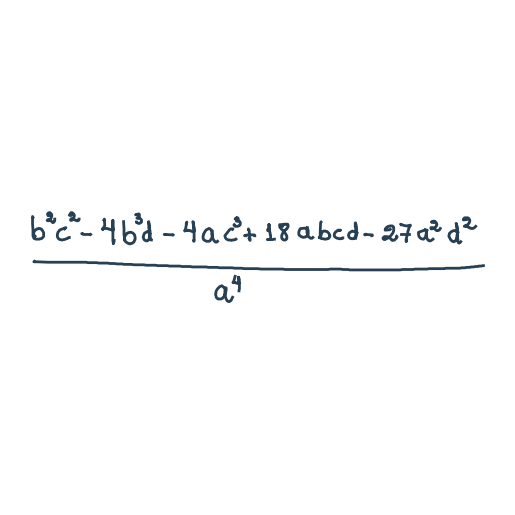 b²c² - 4b³d - 4ac³ + 18abcd - 27a²d²
a⁴